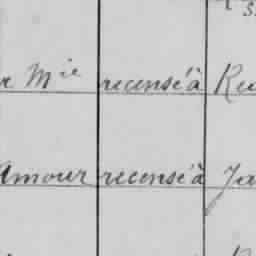 Mie recensé à
amour recensé à